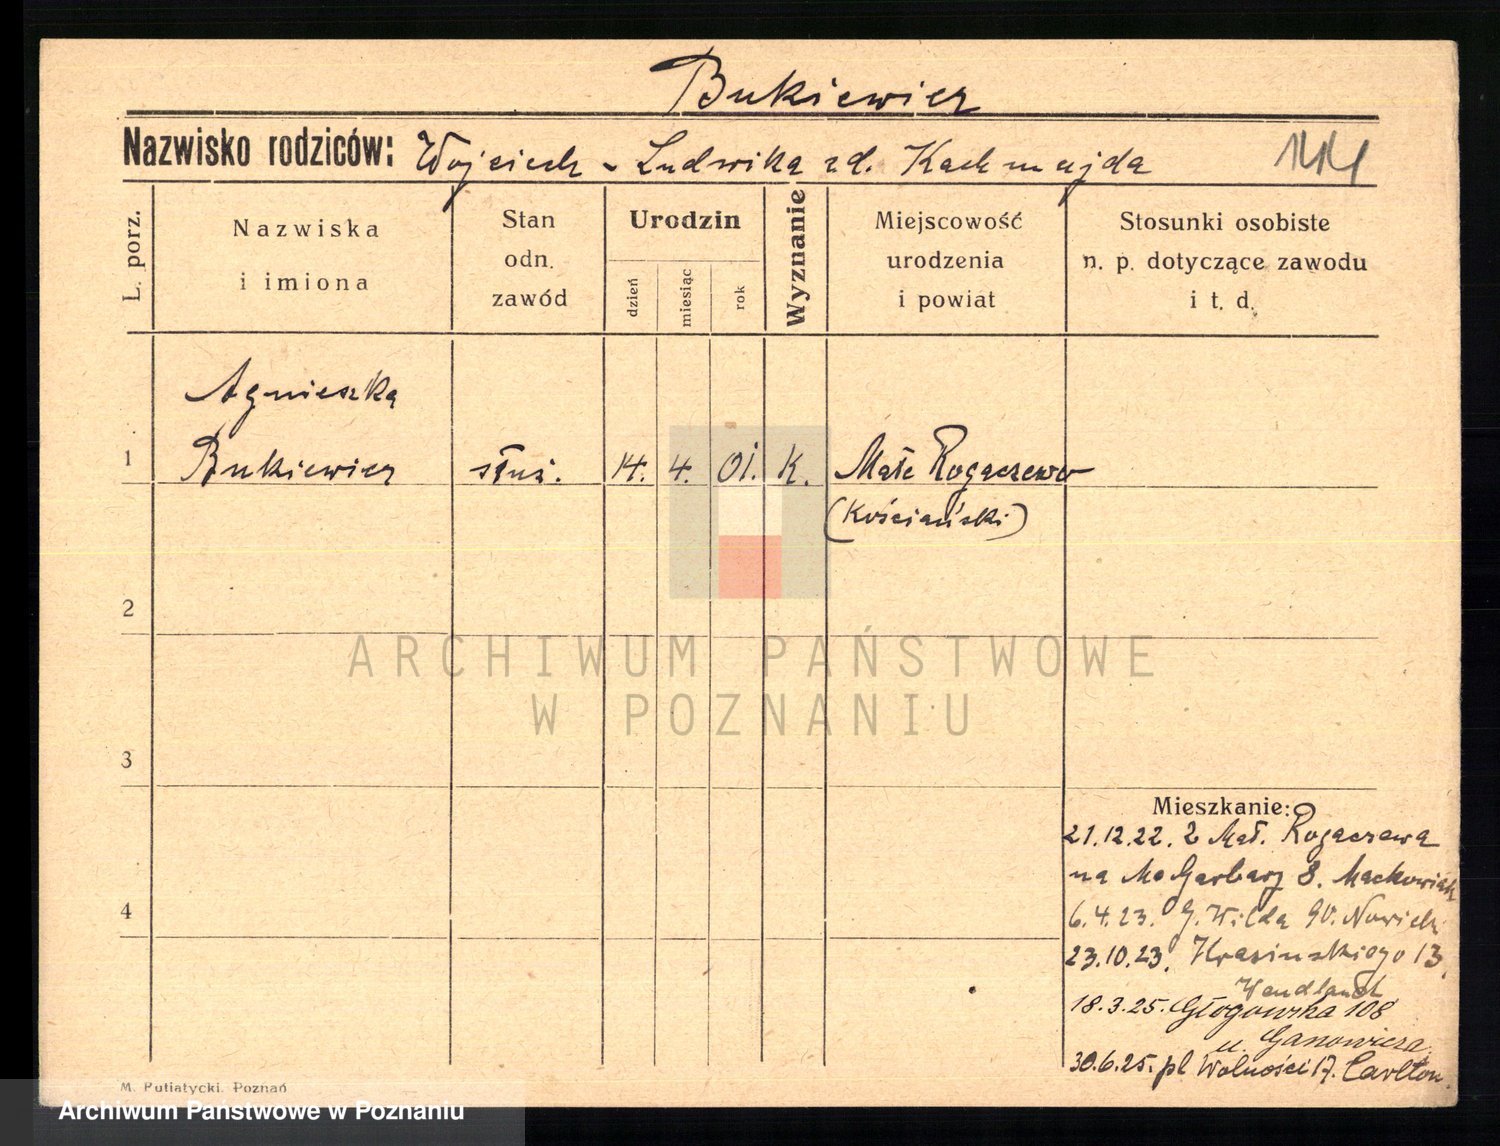 Bukiewicz
Nazwisko rodziców: Wojciech - Ludwika zd. Kachmajda
L. porz.
Nazwiska
i imiona
Stan
odn.
zawód
Urodzin
dzień
miesiąc
rok
Wyznanie
Miejscowość
urodzenia
i powiat
Stosunki osobiste
n. p. dotyczące zawodu
i t. d.
Agnieszka
1 Bukiewicz służ. 14. 4. 01. K. Małe Rogaczewo
(Kościański)
2
3
4
ARCHIWUM PAŃSTWOWE
W POZNANIU
Mieszkanie:
21.12.22. z Mał. Rogaczewa
na M. Garbary 8. Maćkowiak
6.4.23. G. Wilda 90. Nowicki
23.10.23. Krasińskiego 13.
18.3.25. Głogowska 108
u. Ganowicza
30.6.25. pl Wolności 17. Carlton.
M. Putiatycki, Poznań
Archiwum Państwowe w Poznaniu